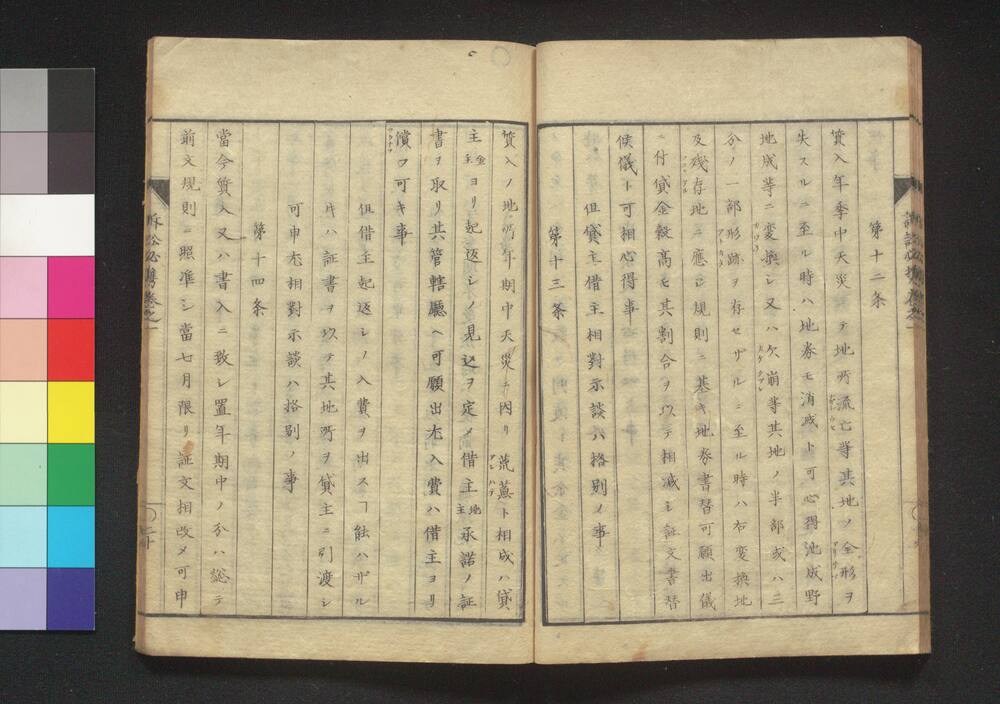 第十二条
質入年季中天災ニテ地所流亡等其地ノ全形ヲ
失スルニ至ル時ハ地券モ消滅ト可心得池成野
地成等ニ変換シ又ハ欠崩等其地ノ半部或ハ三
分ノ一部形跡ヲ存セザルニ至ル時ハ右変換地
及残存地ニ應シ規則ニ基キ地券書替可願出儀
ニ付貸金穀高モ其割合ヲ以テ相減シ証文書替
候儀ト可相心得事
但貸主借主相對示談ハ格別ノ事
第十三条
質入ノ地所年期中天災ニ因リ荒蕪ト相成ハ貸
主金主ヨリ起返シノ見込ヲ定メ借主地主承諾ノ証
書ヲ取リ其管轄廳ヘ可願出尤入費ハ借主ヨリ
償フ可キ事
但借主起返シノ入費ヲ出スヿ能ハザル
片ハ証書ヲ以テ其地所ヲ貸主ニ引渡シ
可申尤相對示談ハ格別ノ事
第十四条
當今質入又ハ書入ニ致シ置年期中ノ分ハ総テ
前文規則ニ照準シ當七月限リ証文相改メ可申
訴訟必携巻之一
二十